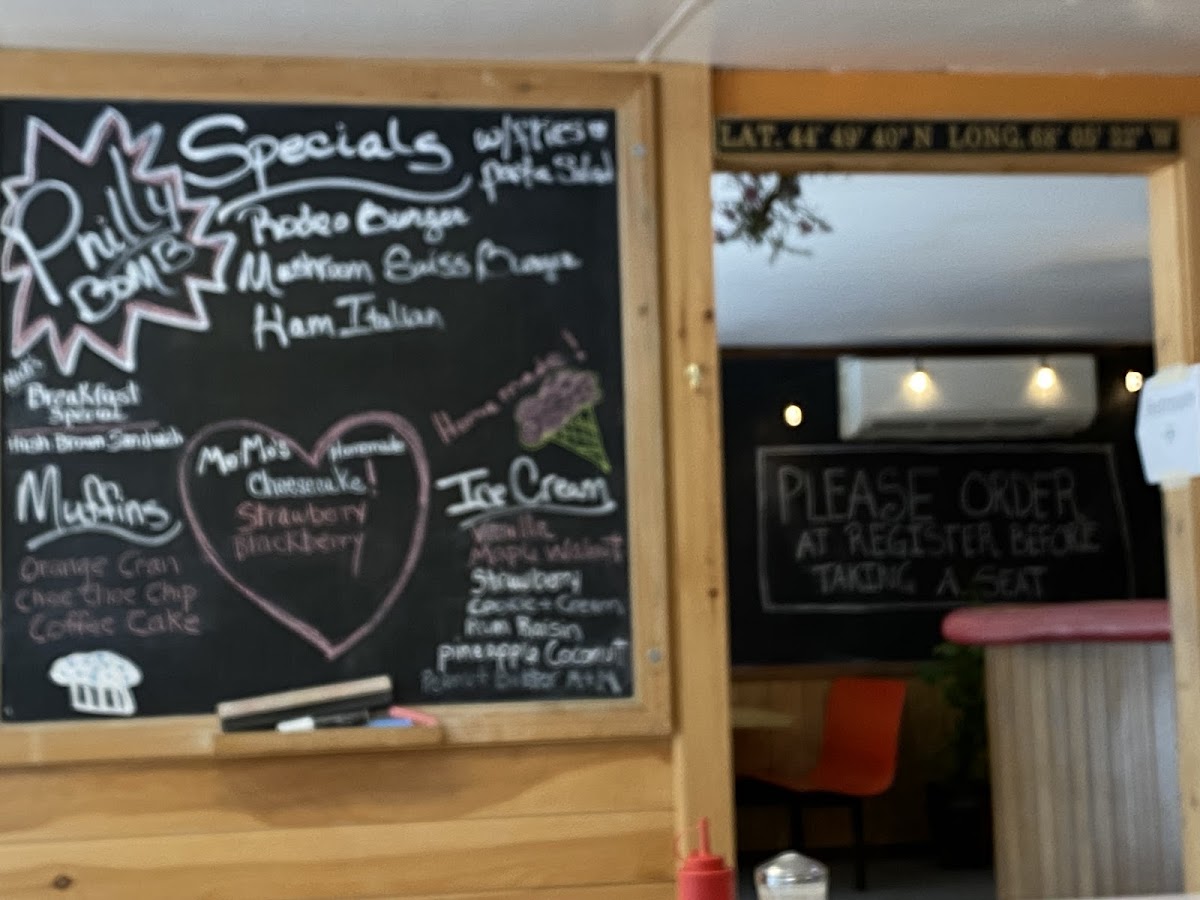 Philly
BOMB
Specials
w/fries or
pasta Salad
Rodeo Burger
Mushroom Swiss Burger
Ham Italian
Breakfast
Special
Hash Brown Sandwich
Muffins
Orange Cran
Choc Choc Chip
Coffee Cake
MoMo's Homemade
Cheesecake!
Strawbery
Blackberry
Homemade!
Ice Cream
Vanilla
Maple Walnut
Strawbery
Cookie + Cream
Rum Raisin
pineapple Coconut
Peanut Butter
LAT. 44° 49' 40" N LONG. 68°
PLEASE ORDER
AT REGISTER BEFORE
TAKING A SEAT
Restroom